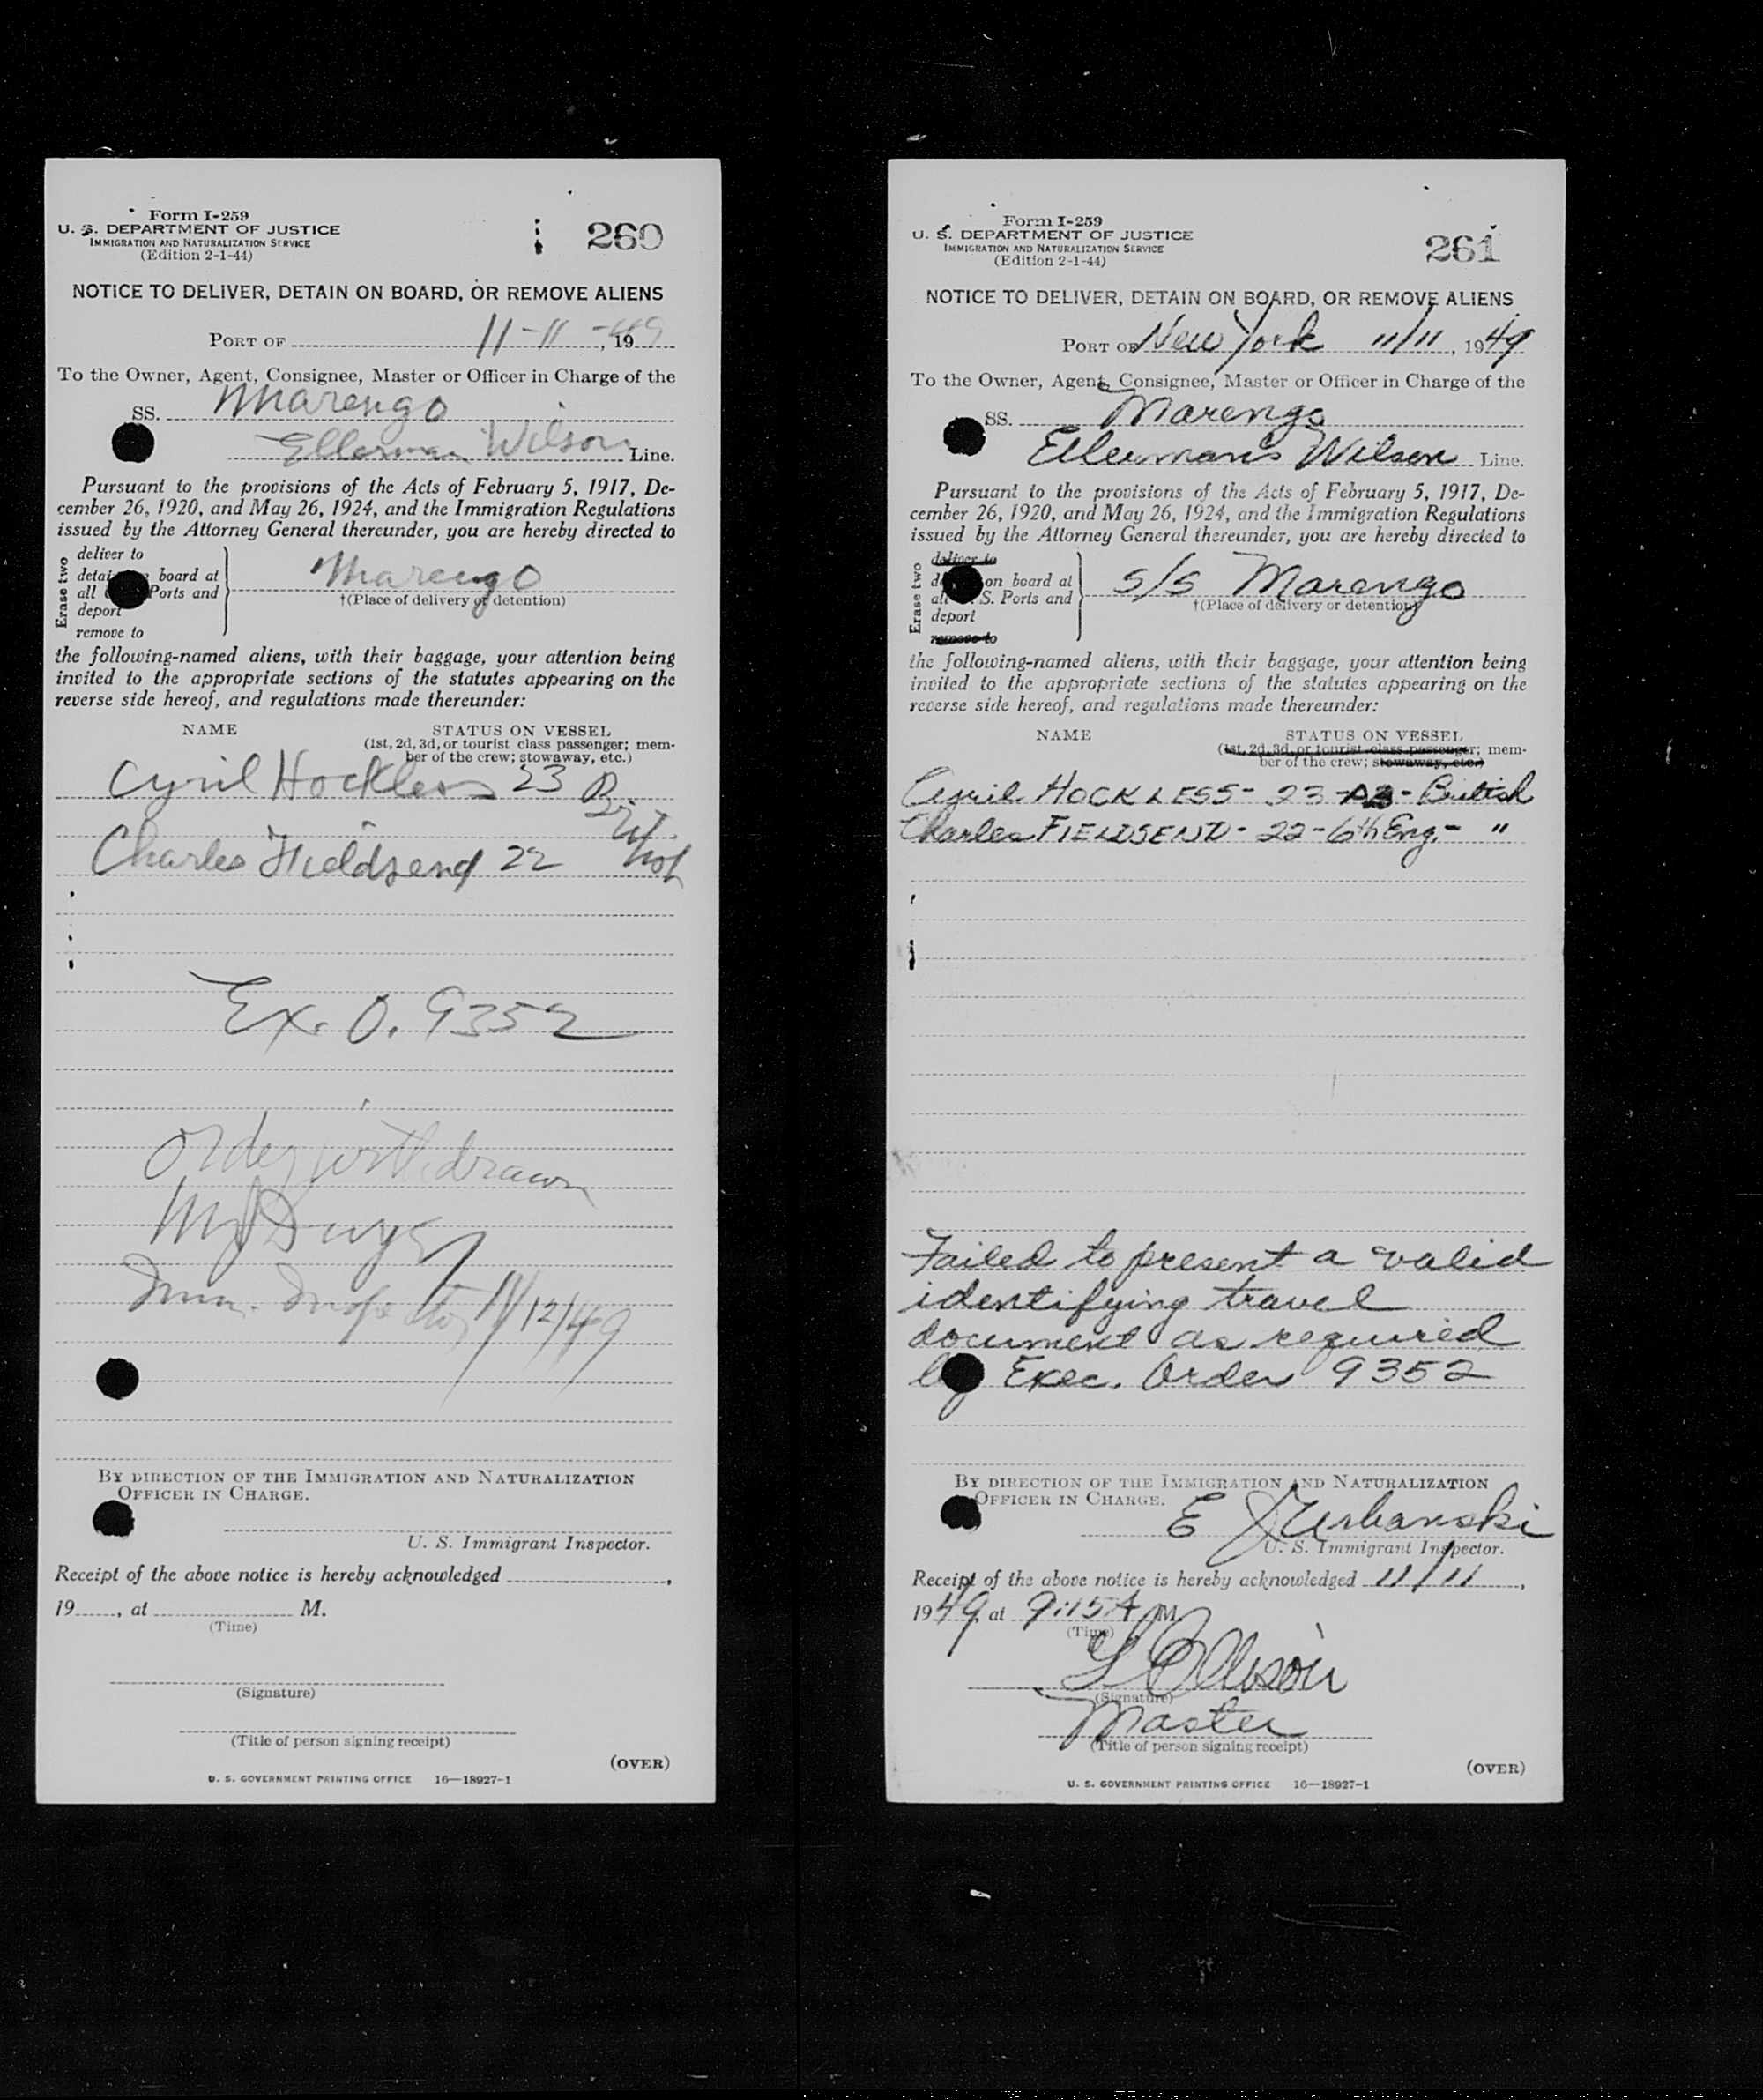 Form I-259
U. S. DEPARTMENT OF JUSTICE
IMMIGRATION AND NATURALIZATION SERVICE
(Edition 2-1-44)
260
NOTICE TO DELIVER, DETAIN ON BOARD, OR REMOVE ALIENS
PORT OF 11-11-, 1949
To the Owner, Agent, Consignee, Master or Officer in Charge of the
SS. Marengo
Ellerman Wilson Line.
Pursuant to the provisions of the Acts of February 5, 1917, De-
cember 26, 1920, and May 26, 1924, and the Immigration Regulations
issued by the Attorney General thereunder, you are hereby directed to
Erase two
deliver to
board at
all Ports and
deport
remove to
Marengo
†(Place of delivery or detention)
the following-named aliens, with their baggage, your attention being
invited to the appropriate sections of the statutes appearing on the
reverse side hereof, and regulations made thereunder:
NAME STATUS ON VESSEL
(1st, 2d, 3d, or tourist class passenger; mem-
ber of the crew; stowaway, etc.)
Cyril Hockless 23 British
Charles Fieldsend 22
Ex. O. 9352
Order withdrawn
Imm. Inspector 11/12/49
BY DIRECTION OF THE IMMIGRATION AND NATURALIZATION
OFFICER IN CHARGE.
U. S. Immigrant Inspector.
Receipt of the above notice is hereby acknowledged ,
19 , at M.
(Time)
(Signature)
(Title of person signing receipt)
(OVER)
U. S. GOVERNMENT PRINTING OFFICE 16—18927-1
Form I-259
U. S. DEPARTMENT OF JUSTICE
IMMIGRATION AND NATURALIZATION SERVICE
(Edition 2-1-44)
261
NOTICE TO DELIVER, DETAIN ON BOARD, OR REMOVE ALIENS
PORT OF New York 11/11, 1949
To the Owner, Agent, Consignee, Master or Officer in Charge of the
SS. Marengo
Ellerman's Wilson Line.
Pursuant to the provisions of the Acts of February 5, 1917, De-
cember 26, 1920, and May 26, 1924, and the Immigration Regulations
issued by the Attorney General thereunder, you are hereby directed to
Erase two
deliver to
on board at
S. Ports and
deport
remove to
s/s Marengo
†(Place of delivery or detention)
the following-named aliens, with their baggage, your attention being
invited to the appropriate sections of the statutes appearing on the
reverse side hereof, and regulations made thereunder:
NAME STATUS ON VESSEL
(1st, 2d, 3d, or tourist class passenger; mem-
ber of the crew; stowaway, etc.)
Cyril HOCKLESS - 23 - AB - British
Charles FIELDSEND - 22 - 6th Eng. - "
Failed to present a valid
identifying travel
document as required
by Exec. Order 9352
BY DIRECTION OF THE IMMIGRATION AND NATURALIZATION
OFFICER IN CHARGE.
E J Urbanski
U. S. Immigrant Inspector.
Receipt of the above notice is hereby acknowledged 11/11,
1949, at 9:15 A M.
(Time)
(Signature)
Master
(Title of person signing receipt)
(OVER)
U. S. GOVERNMENT PRINTING OFFICE 16—18927-1